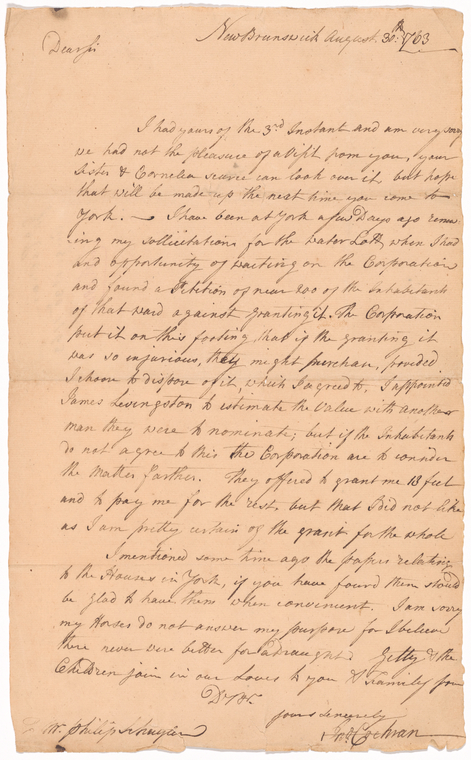 New Brunswick August. 30th. 1763
Dear Sir
I had yours of the 3rd Instant and am very sorry
we had not the pleasure of a Visit from you, your
Sister & Cornelia scarce can look over it but hope
that will be made up the next time you come to
York. — I have been at York a few Days ago renew
ing my sollicitations for the water Lott, when I had
and opportunity of waiting on the Corporation
and found a Petition of near 200 of the Inhabitants
of that ward against granting it. The Corporation
put it on this footing, that if the granting it
was so injurious, they might purchase, provided
I choose to dispose of it, which I agreed to, I appointed
James Levingston to estimate the Value with another
man they were to nominate, but if the Inhabitants
do not agree to this the Corporation are to consider
the Matter farther. They offered to grant me 18 feet
and to pay me for the rest, but that I did not like
as I am pretty certain of the grant for the whole
I mentioned some time ago the papers relating
to the Houses in York, if you have found them should
be glad to have them when convenient. I am sorry
my Horses do not answer my purpose for I believe
there never were better for a Draught. Gitty & the
Children join in our Loves to you & Family from
Dr Sr.
yours Sincerely
Jno. Cochran
Mr. Philip Schuyler